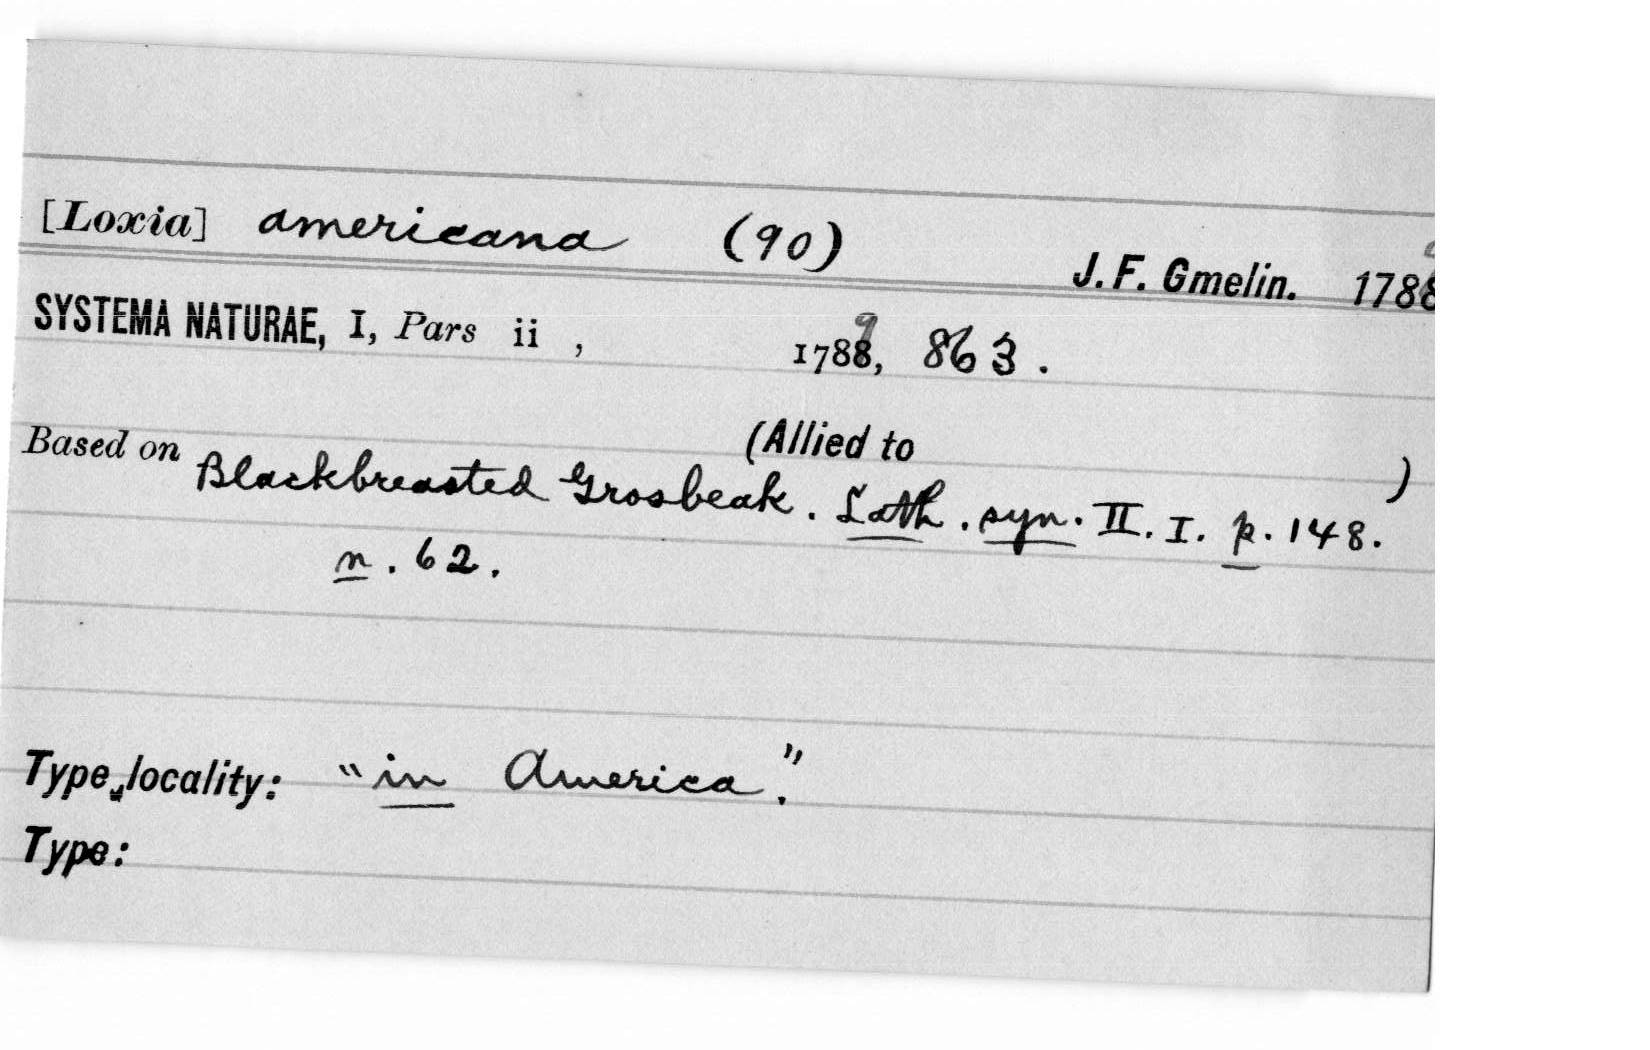 [Loxia] americana (90) J. F. Gmelin. 1788
SYSTEMA NATURAE, I, Pars ii , 1789, 863.
(Allied to )
Based on Blackbreasted Grosbeak. Lath. syn. II. I. p. 148.
n. 62.
Type locality: "in America."
Type: